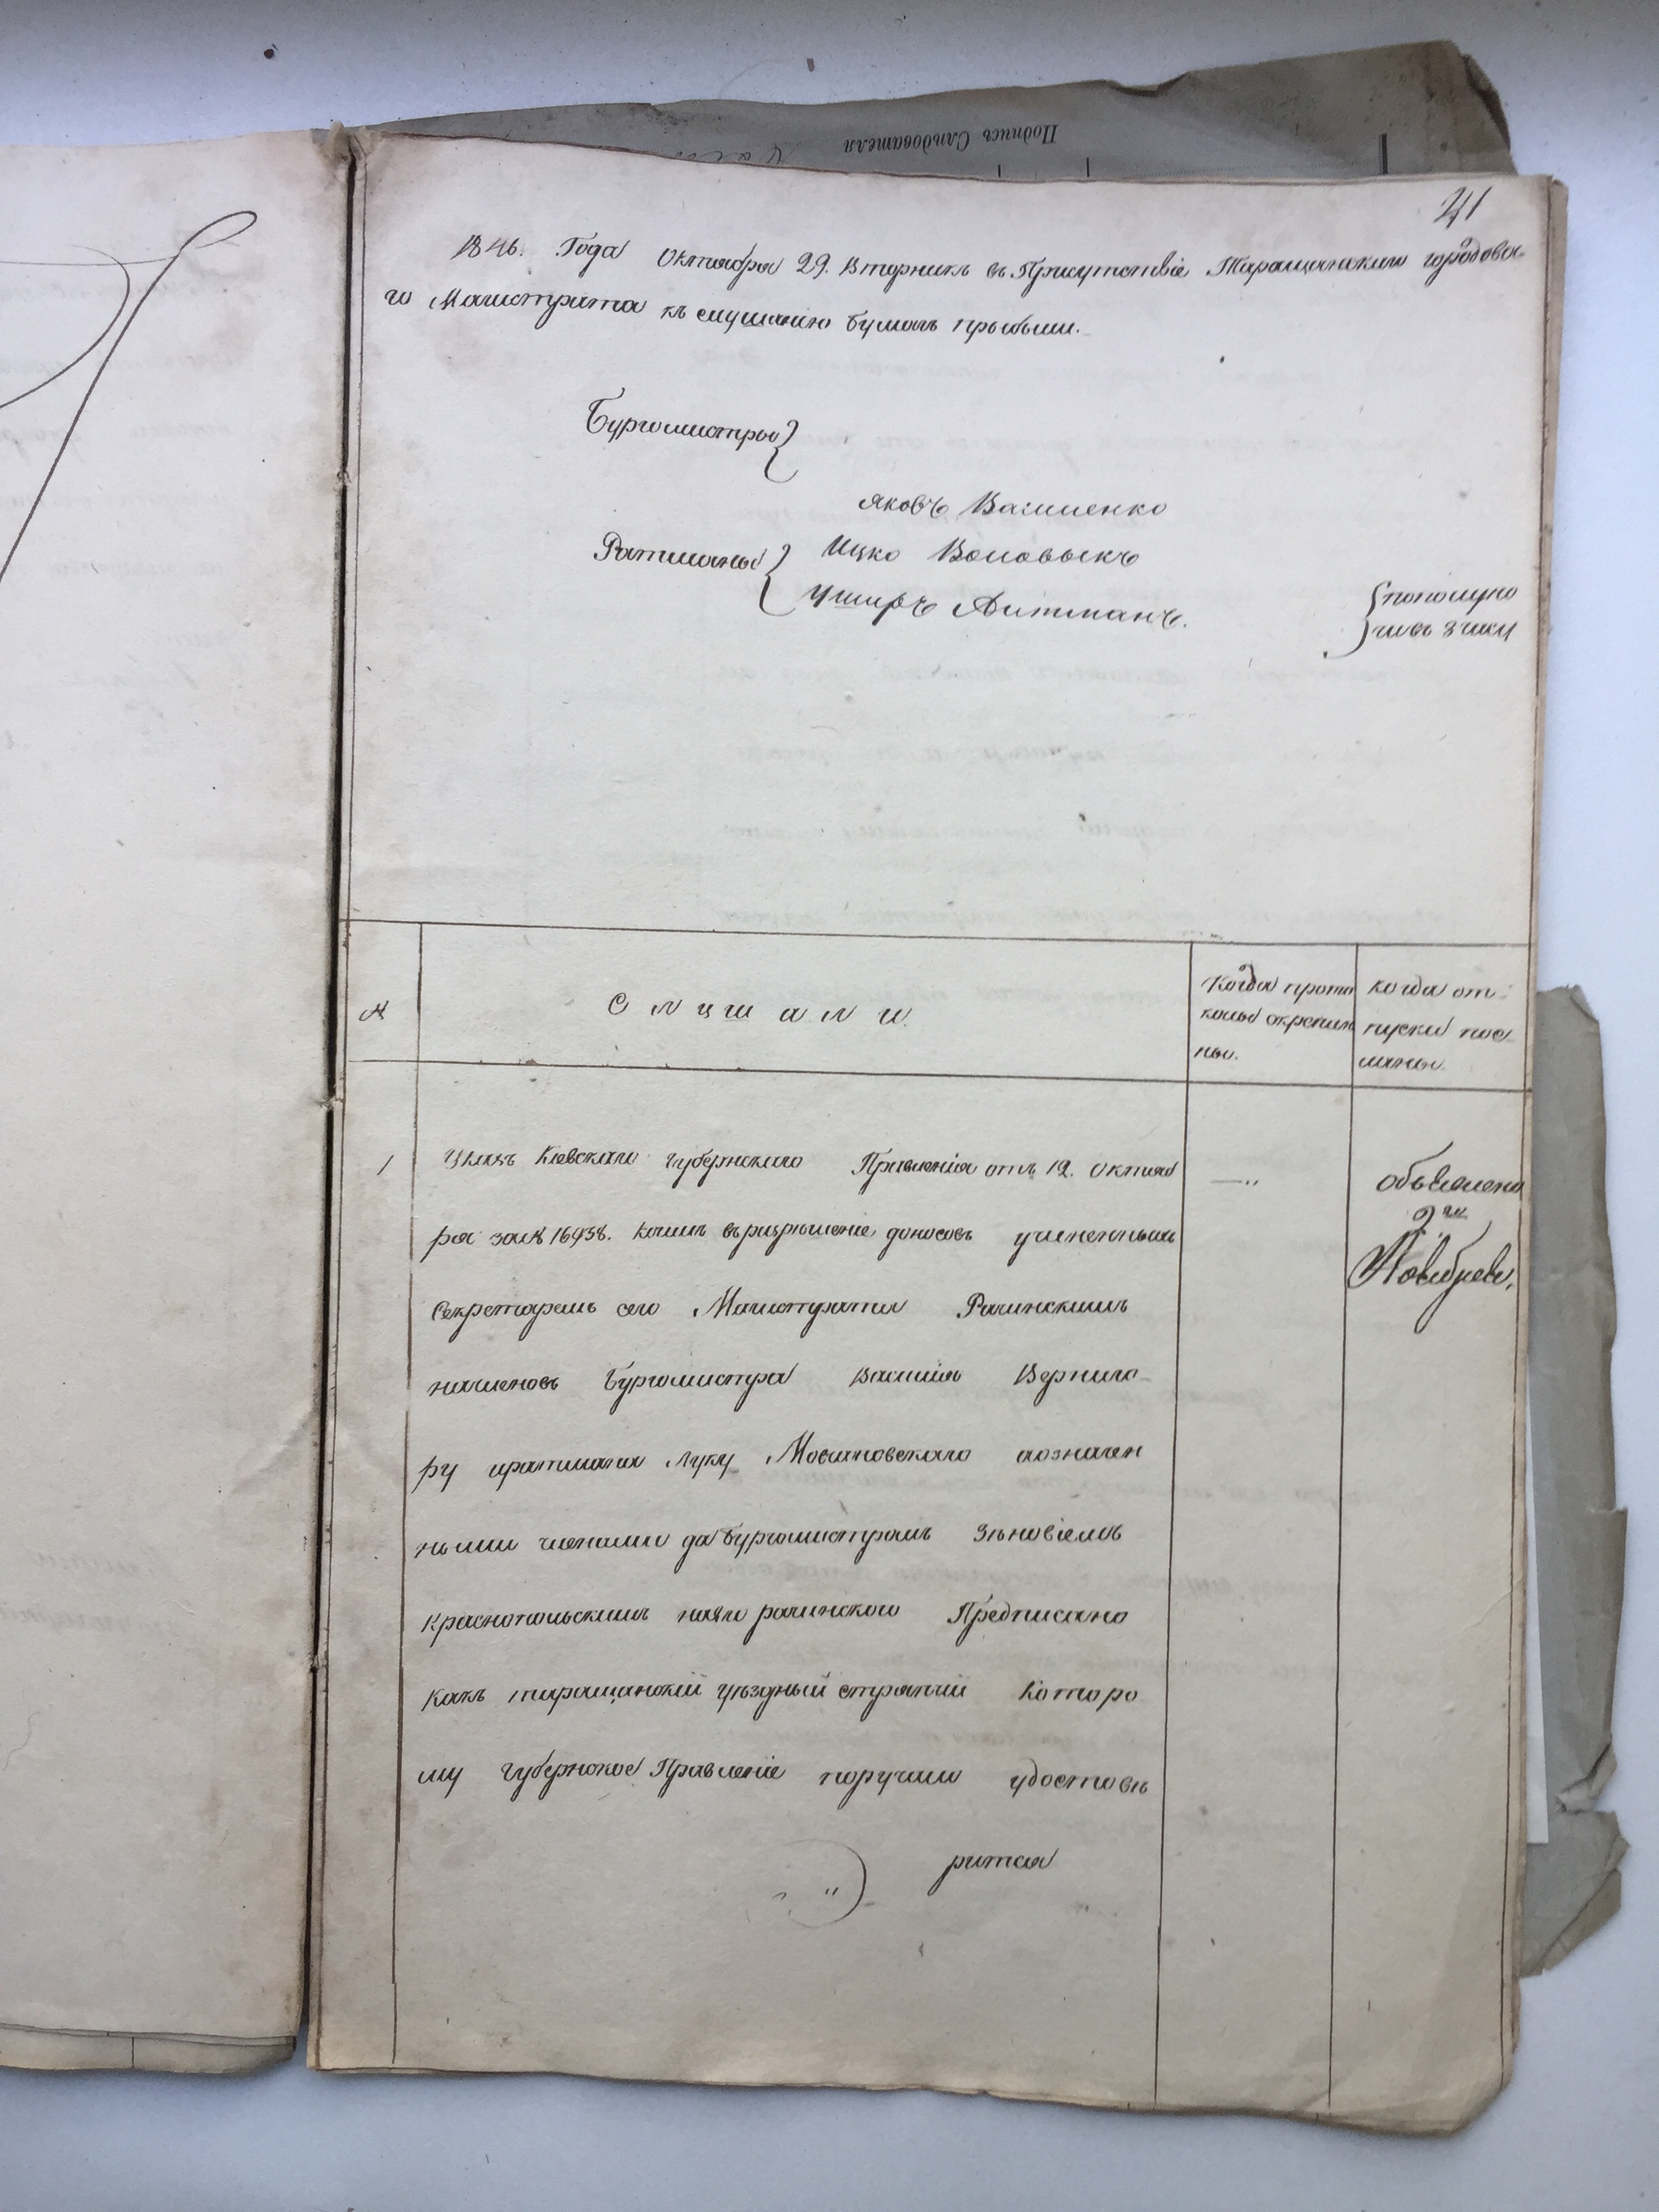 Подпись Слѣдователя
41
1846. Года Октября 29. Вторникъ въ Присутствіе Таращанскаго городова-
го Магистрата къ слушанію бумагъ прибыли.
Бургомистры
Яковъ Василенко
Ратманы Ицко Воловыкъ
Ушеръ Антманъ.
по полуно
чивъ 3 часу
№
Слушали.
Когда прото
колы скрепле
ны.
когда от-
пуски пос-
ланы.
1
Указъ Кіевскаго Губернскаго Правленія отъ 12. Октяб
ря за № 16938. коимъ въ разрѣшеніе доносовъ учиненныхъ
Секретаремъ сего Магистрата Рачинскимъ
начленовъ Бургомистра Василія Верниго-
ру иратмана Луку Мосановскаго аозначен
ными членами да Бургомистромъ Зѣновіемъ
Краснопольскимъ наяго рачинского Предписано
какъ таращанскій уѣздный стряпчій Которо
му Губернское Правленіе поручило удостовѣ
рится
объявлено
2 го
Ноября.